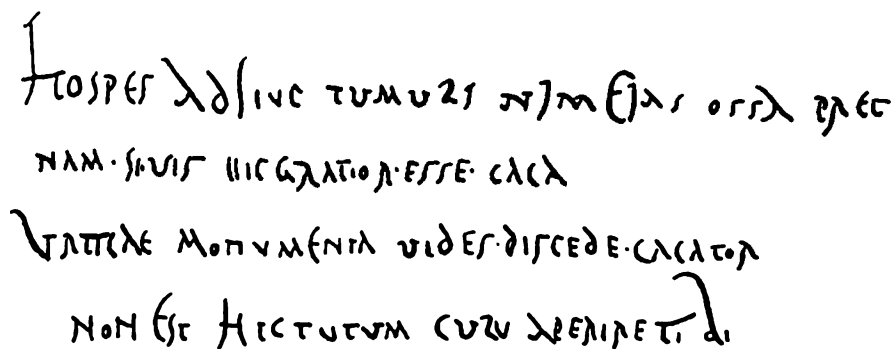 HOSPES ADHUC TUMULI NI MEIAS OSSA PREC
NAM·SI·UIS HUIC GRATIOR·ESSE·CACA
URTICAE MONUMENTA UIDES·DISCEDE·CACATOR
NON EST HIC TUTUM CULU APERIRE TIBI